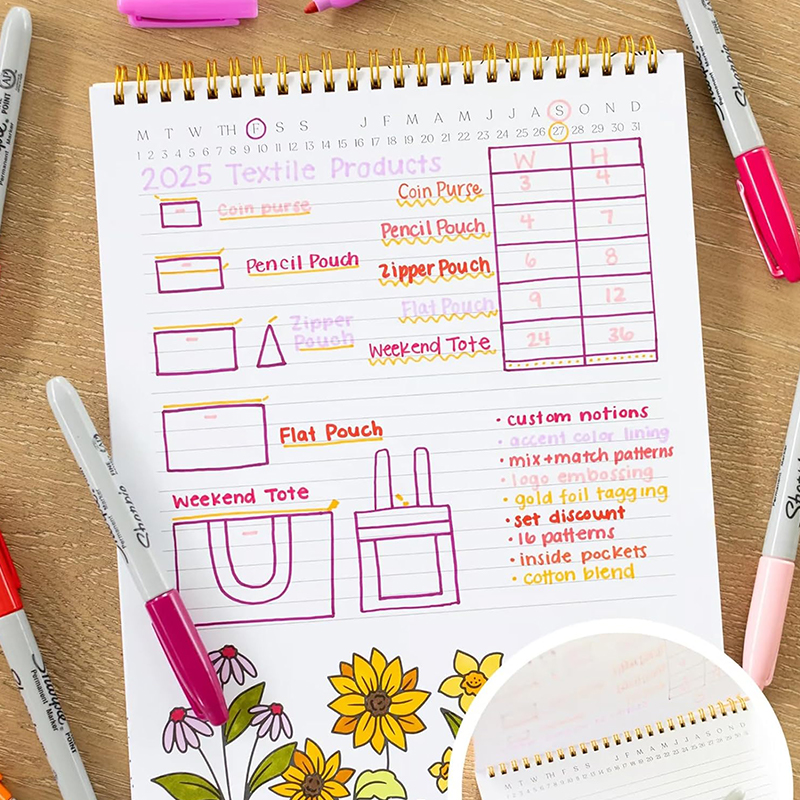 M T W TH F S S J F M A M J J A S O N D
1 2 3 4 5 6 7 8 9 10 11 12 13 14 15 16 17 18 19 20 21 22 23 24 25 26 27 28 29 30 31
2025 Textile Products
W H
Coin purse
Coin Purse 3 4
Pencil Pouch 4 7
Pencil Pouch
Zipper Pouch 6 8
Zipper
Pouch
Flat Pouch 9 12
Weekend Tote 24 36
Flat Pouch
Weekend Tote
• custom notions
• accent color lining
• mix+match patterns
• logo embossing
• gold foil tagging
• set discount
• 16 patterns
• inside pockets
• cotton blend
Sharpie
Permanent Marker
Sharpie
Sharpie
Permanent Marker
Sharpie
M T W TH F S S J F M A M J J A S O N D